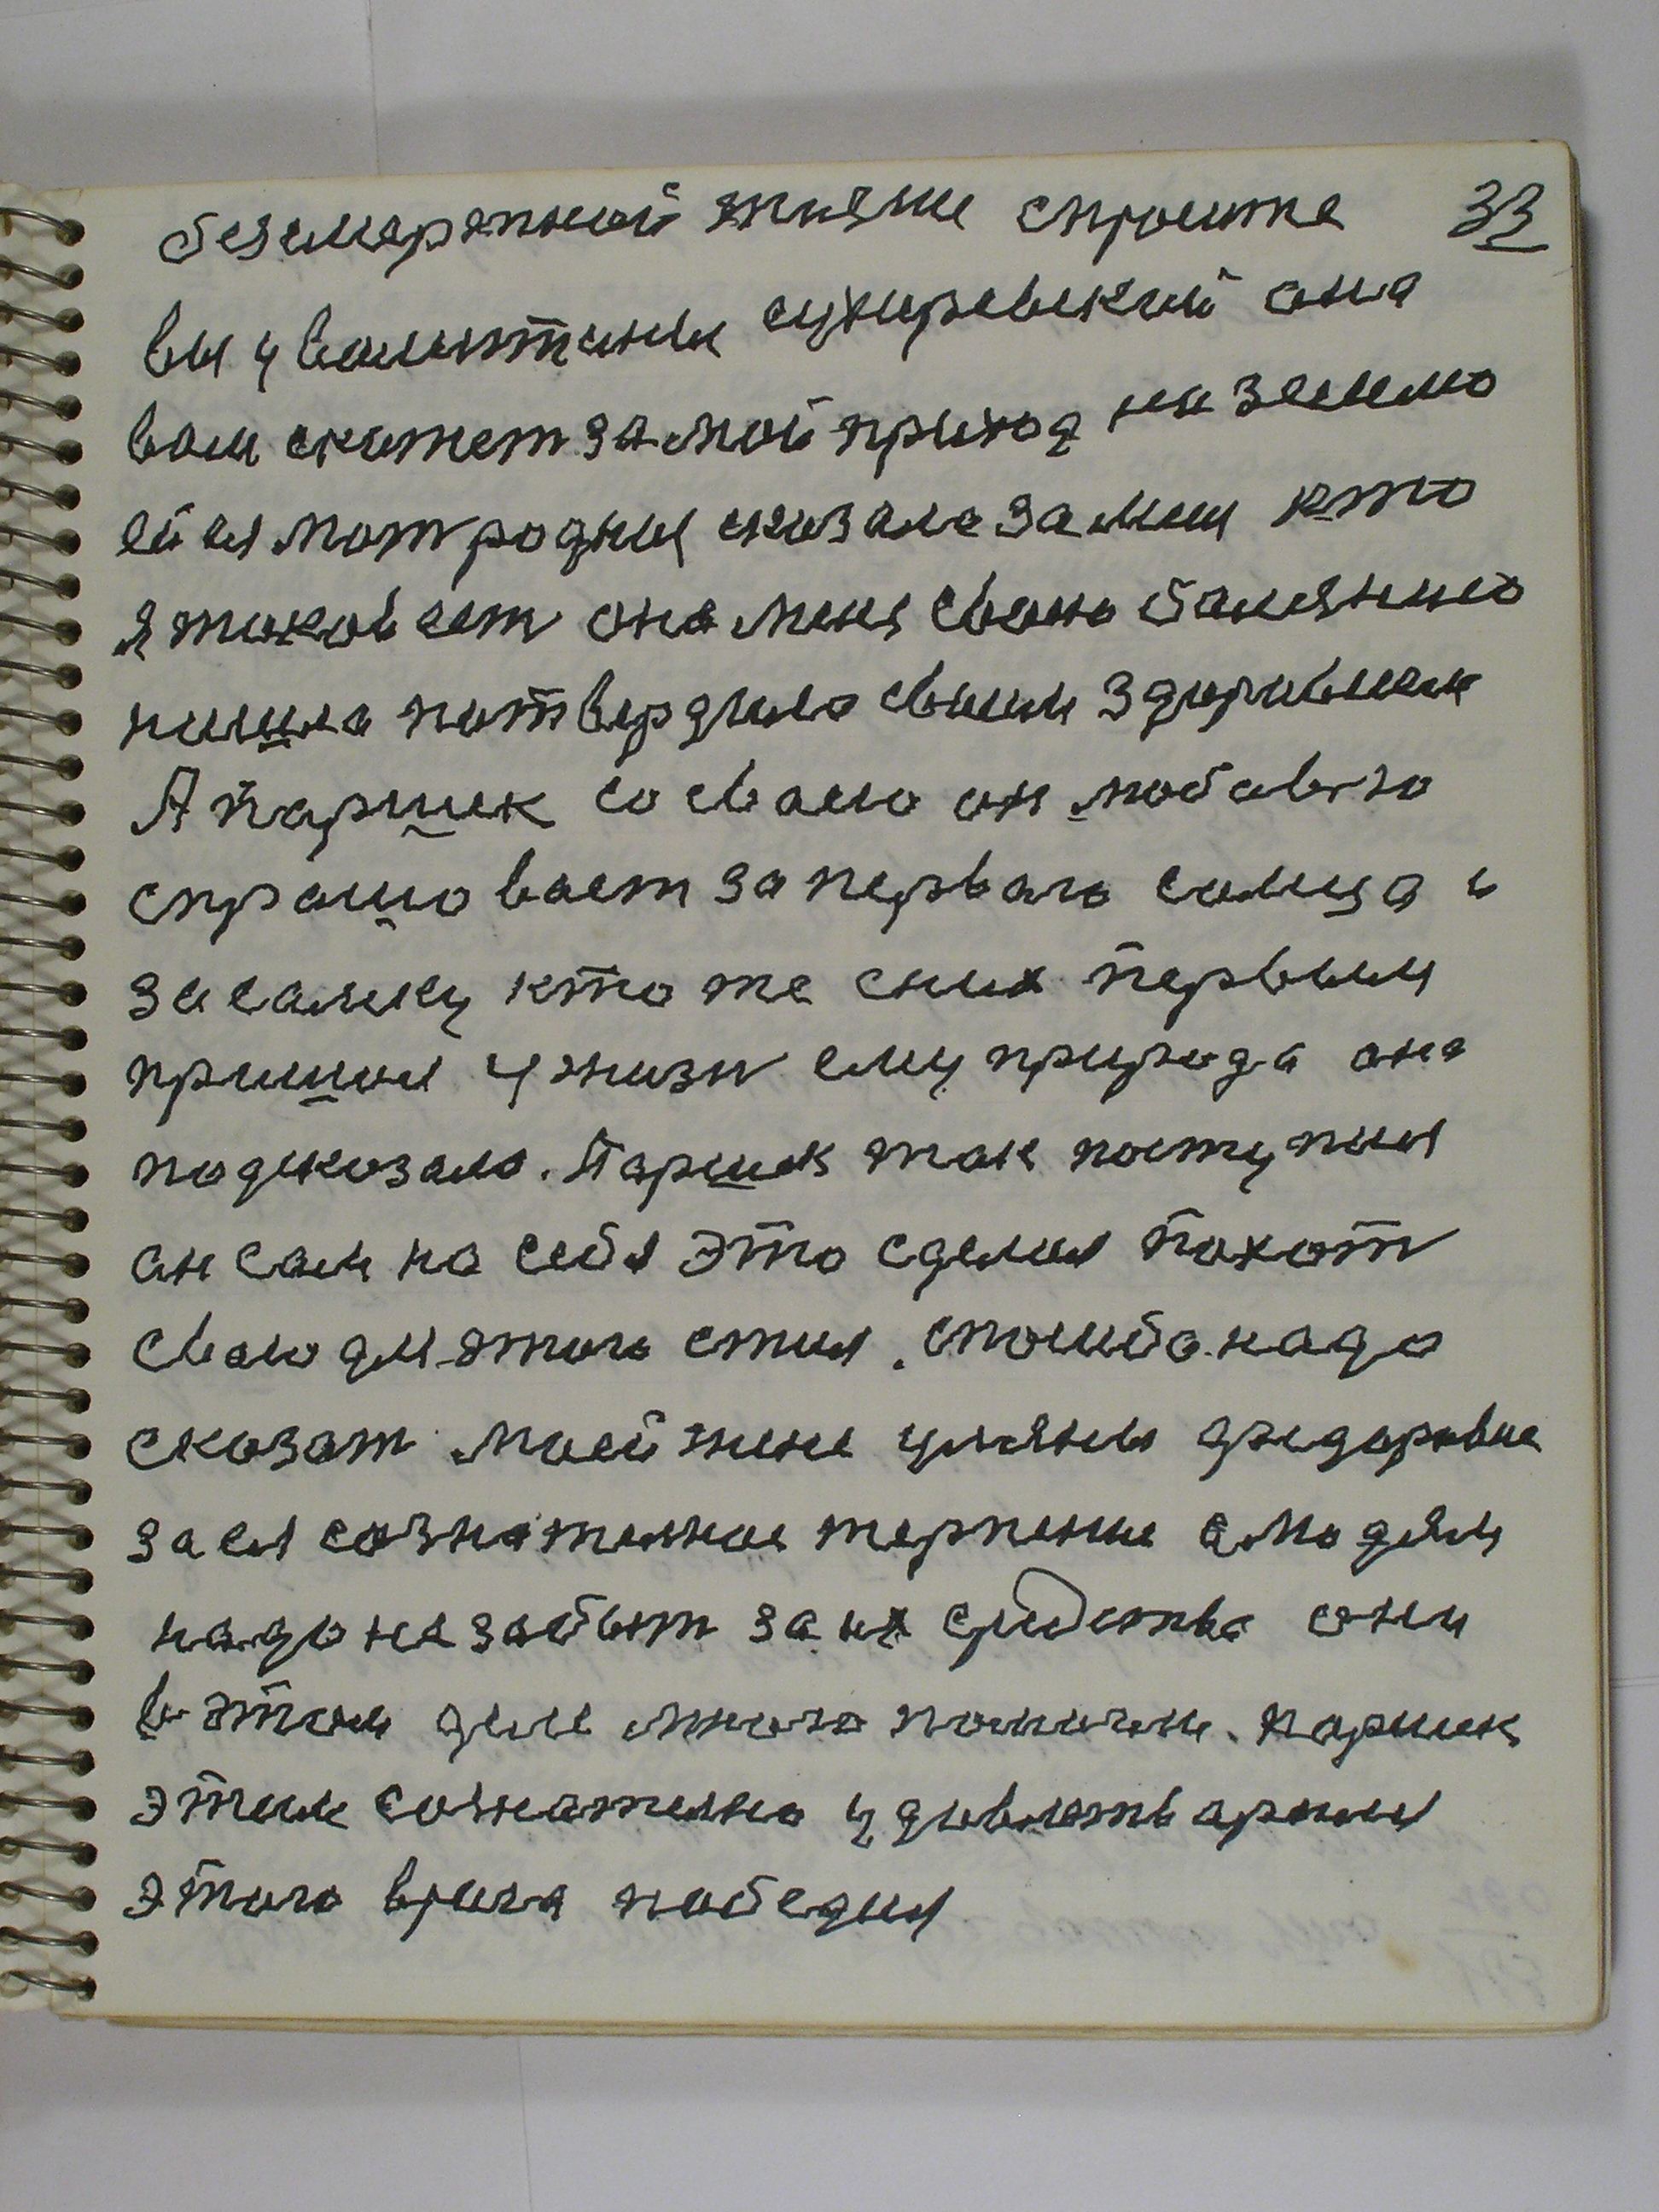 безмертной жизне спросите 33
вы у валинтины сухаревский она
вам скажет за мой приход на землю
ей ея мат родныя сказала за мин кто
я таков ест она меня свояю балезнию
нашла потвердила своим здоровием
А паршик со сваею он любовю
спрашовает за первого самца и
за самку кто же сних первым
пришол у жизн ему природа она
подсказала. Паршик так поступил
он сам на себя это сделал похот
сваю для этого стил. спосиба надо
сказат моей жене улияны федоровне
за ея сознателное терпение а людям
надо не забыт за их средства они
в этом деле много помогли. паршик
этим сознателно удовлетварился
этого врага победил